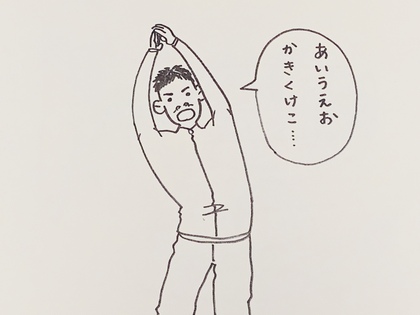 あいうえお
かきくけこ……